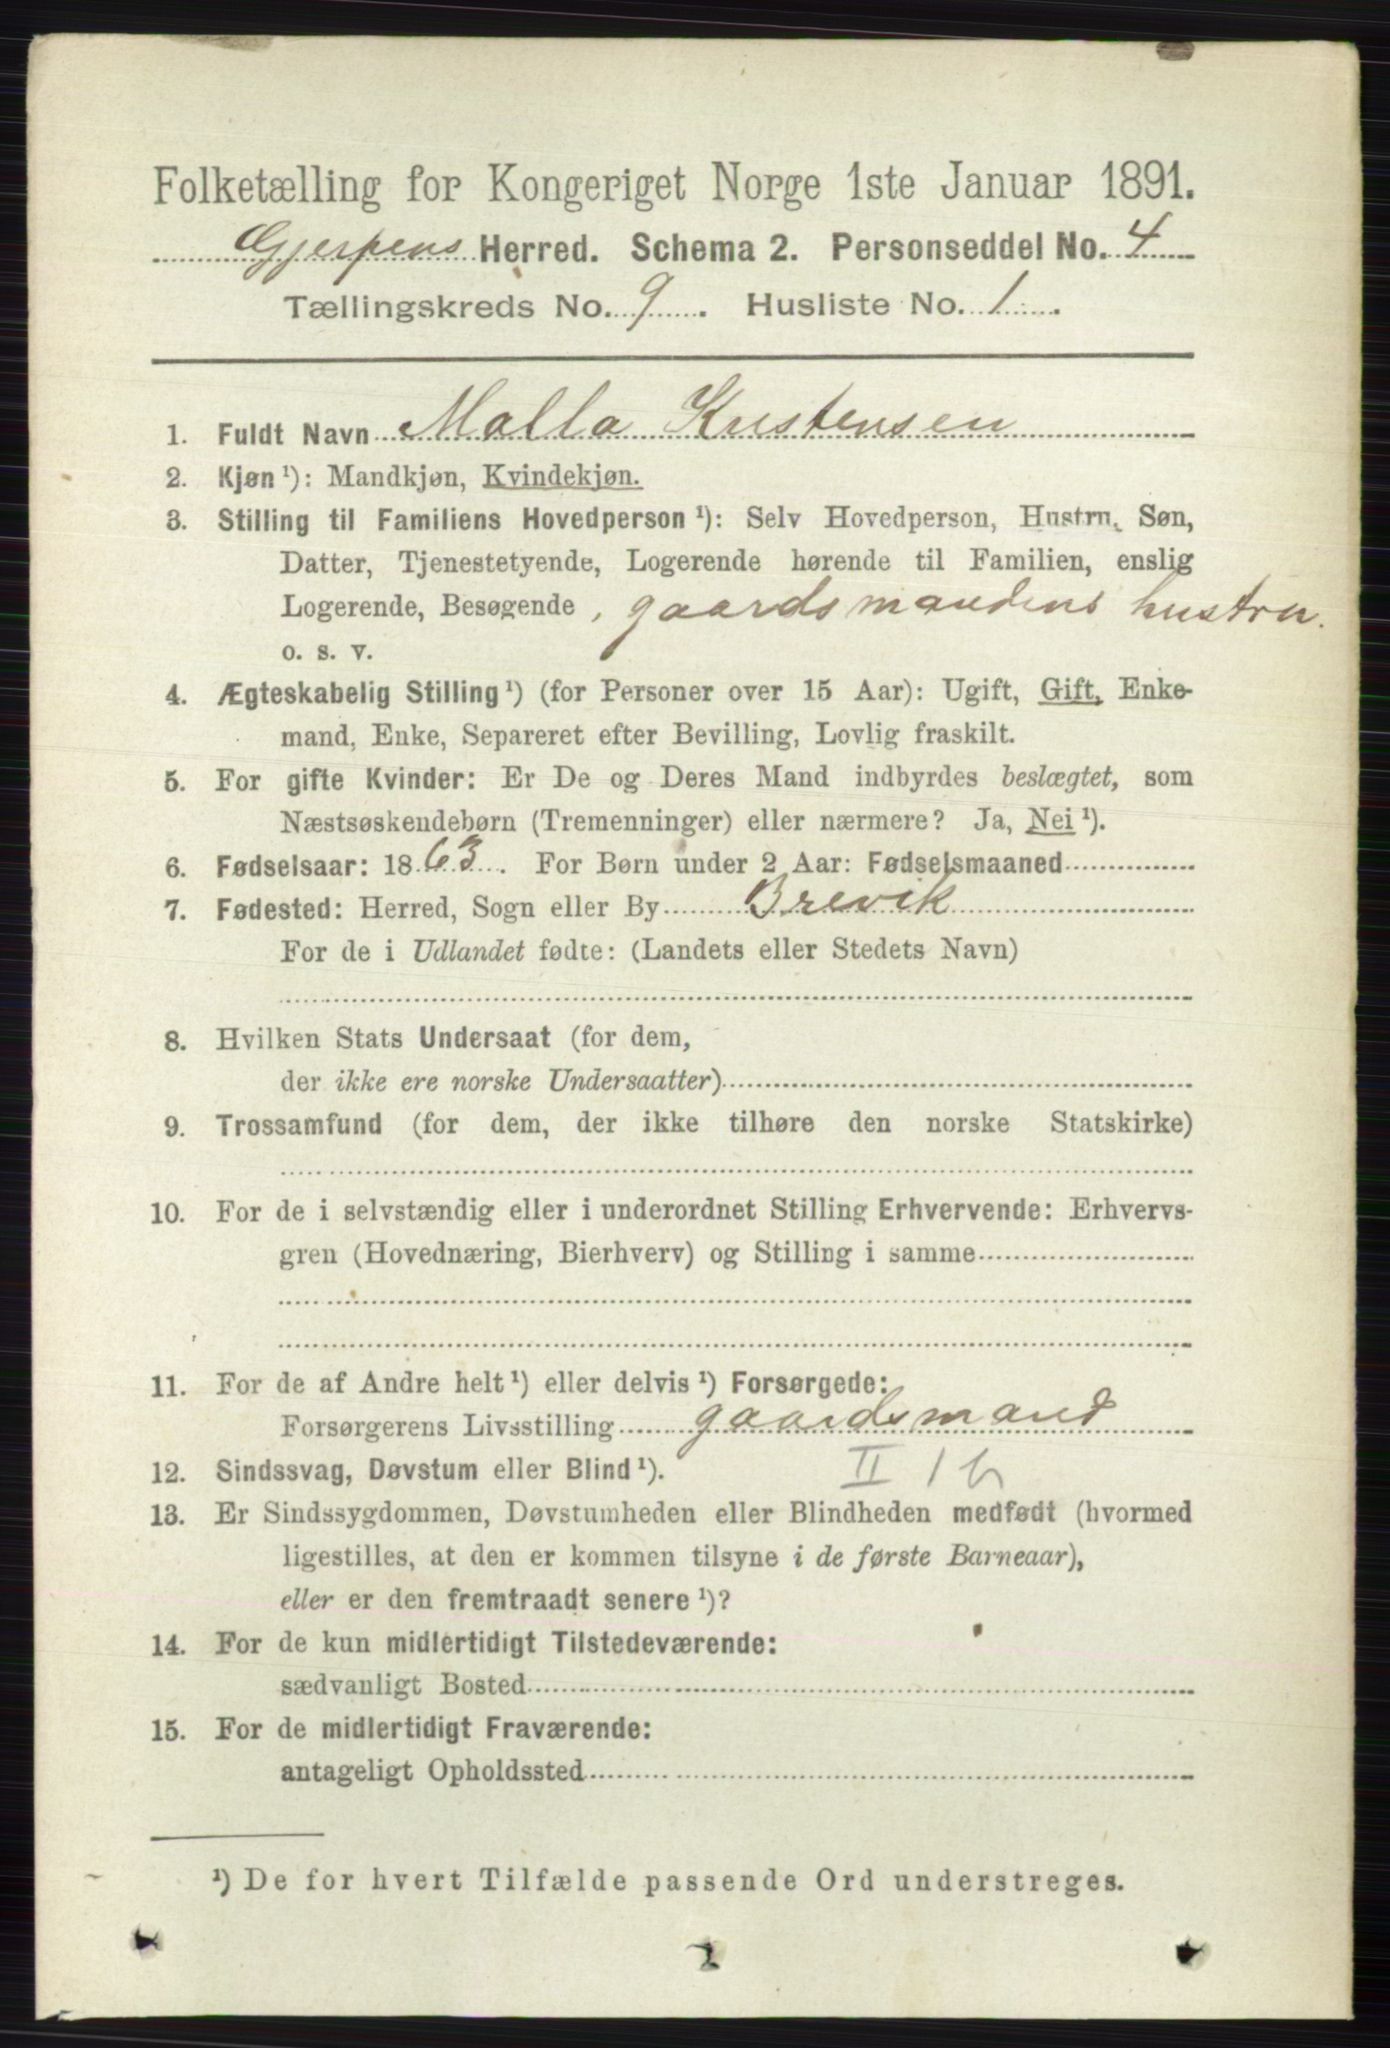 Folketælling for Kongeriget Norge 1ste Januar 1891.
Gjerpens Herred. Schema 2. Personseddel No. 4
Tællingskreds No. 9. Husliste No. 1.
1. Fuldt Navn Malla Kristensen
2. Kjøn ¹): Mandkjøn, Kvindekjøn.
3. Stilling til Familiens Hovedperson ¹): Selv Hovedperson, Hustru, Søn,
Datter, Tjenestetyende, Logerende hørende til Familien, enslig
Logerende, Besøgende, gaardsmandens hustru.
o. s. v.
4. Ægteskabelig Stilling ¹) (for Personer over 15 Aar): Ugift, Gift, Enke-
mand, Enke, Separeret efter Bevilling, Lovlig fraskilt.
5. For gifte Kvinder: Er De og Deres Mand indbyrdes beslægtet, som
Næstsøskendebørn (Tremenninger) eller nærmere? Ja, Nei ¹).
6. Fødselsaar: 1863. For Børn under 2 Aar: Fødselsmaaned
7. Fødested: Herred, Sogn eller By Brevik
For de i Udlandet fødte: (Landets eller Stedets Navn)
8. Hvilken Stats Undersaat (for dem,
der ikke ere norske Undersaatter)
9. Trossamfund (for dem, der ikke tilhøre den norske Statskirke)
10. For de i selvstændig eller i underordnet Stilling Erhvervende: Erhvervs-
gren (Hovednæring, Bierhverv) og Stilling i samme
11. For de af Andre helt ¹) eller delvis ¹) Forsørgede:
Forsørgerens Livsstilling gaardsmand
12. Sindssvag, Døvstum eller Blind ¹). II 1 b
13. Er Sindssygdommen, Døvstumheden eller Blindheden medfødt (hvormed
ligestilles, at den er kommen tilsyne i de første Barneaar),
eller er den fremtraadt senere ¹)?
14. For de kun midlertidigt Tilstedeværende:
sædvanligt Bosted
15. For de midlertidigt Fraværende:
antageligt Opholdssted
¹) De for hvert Tilfælde passende Ord understreges.